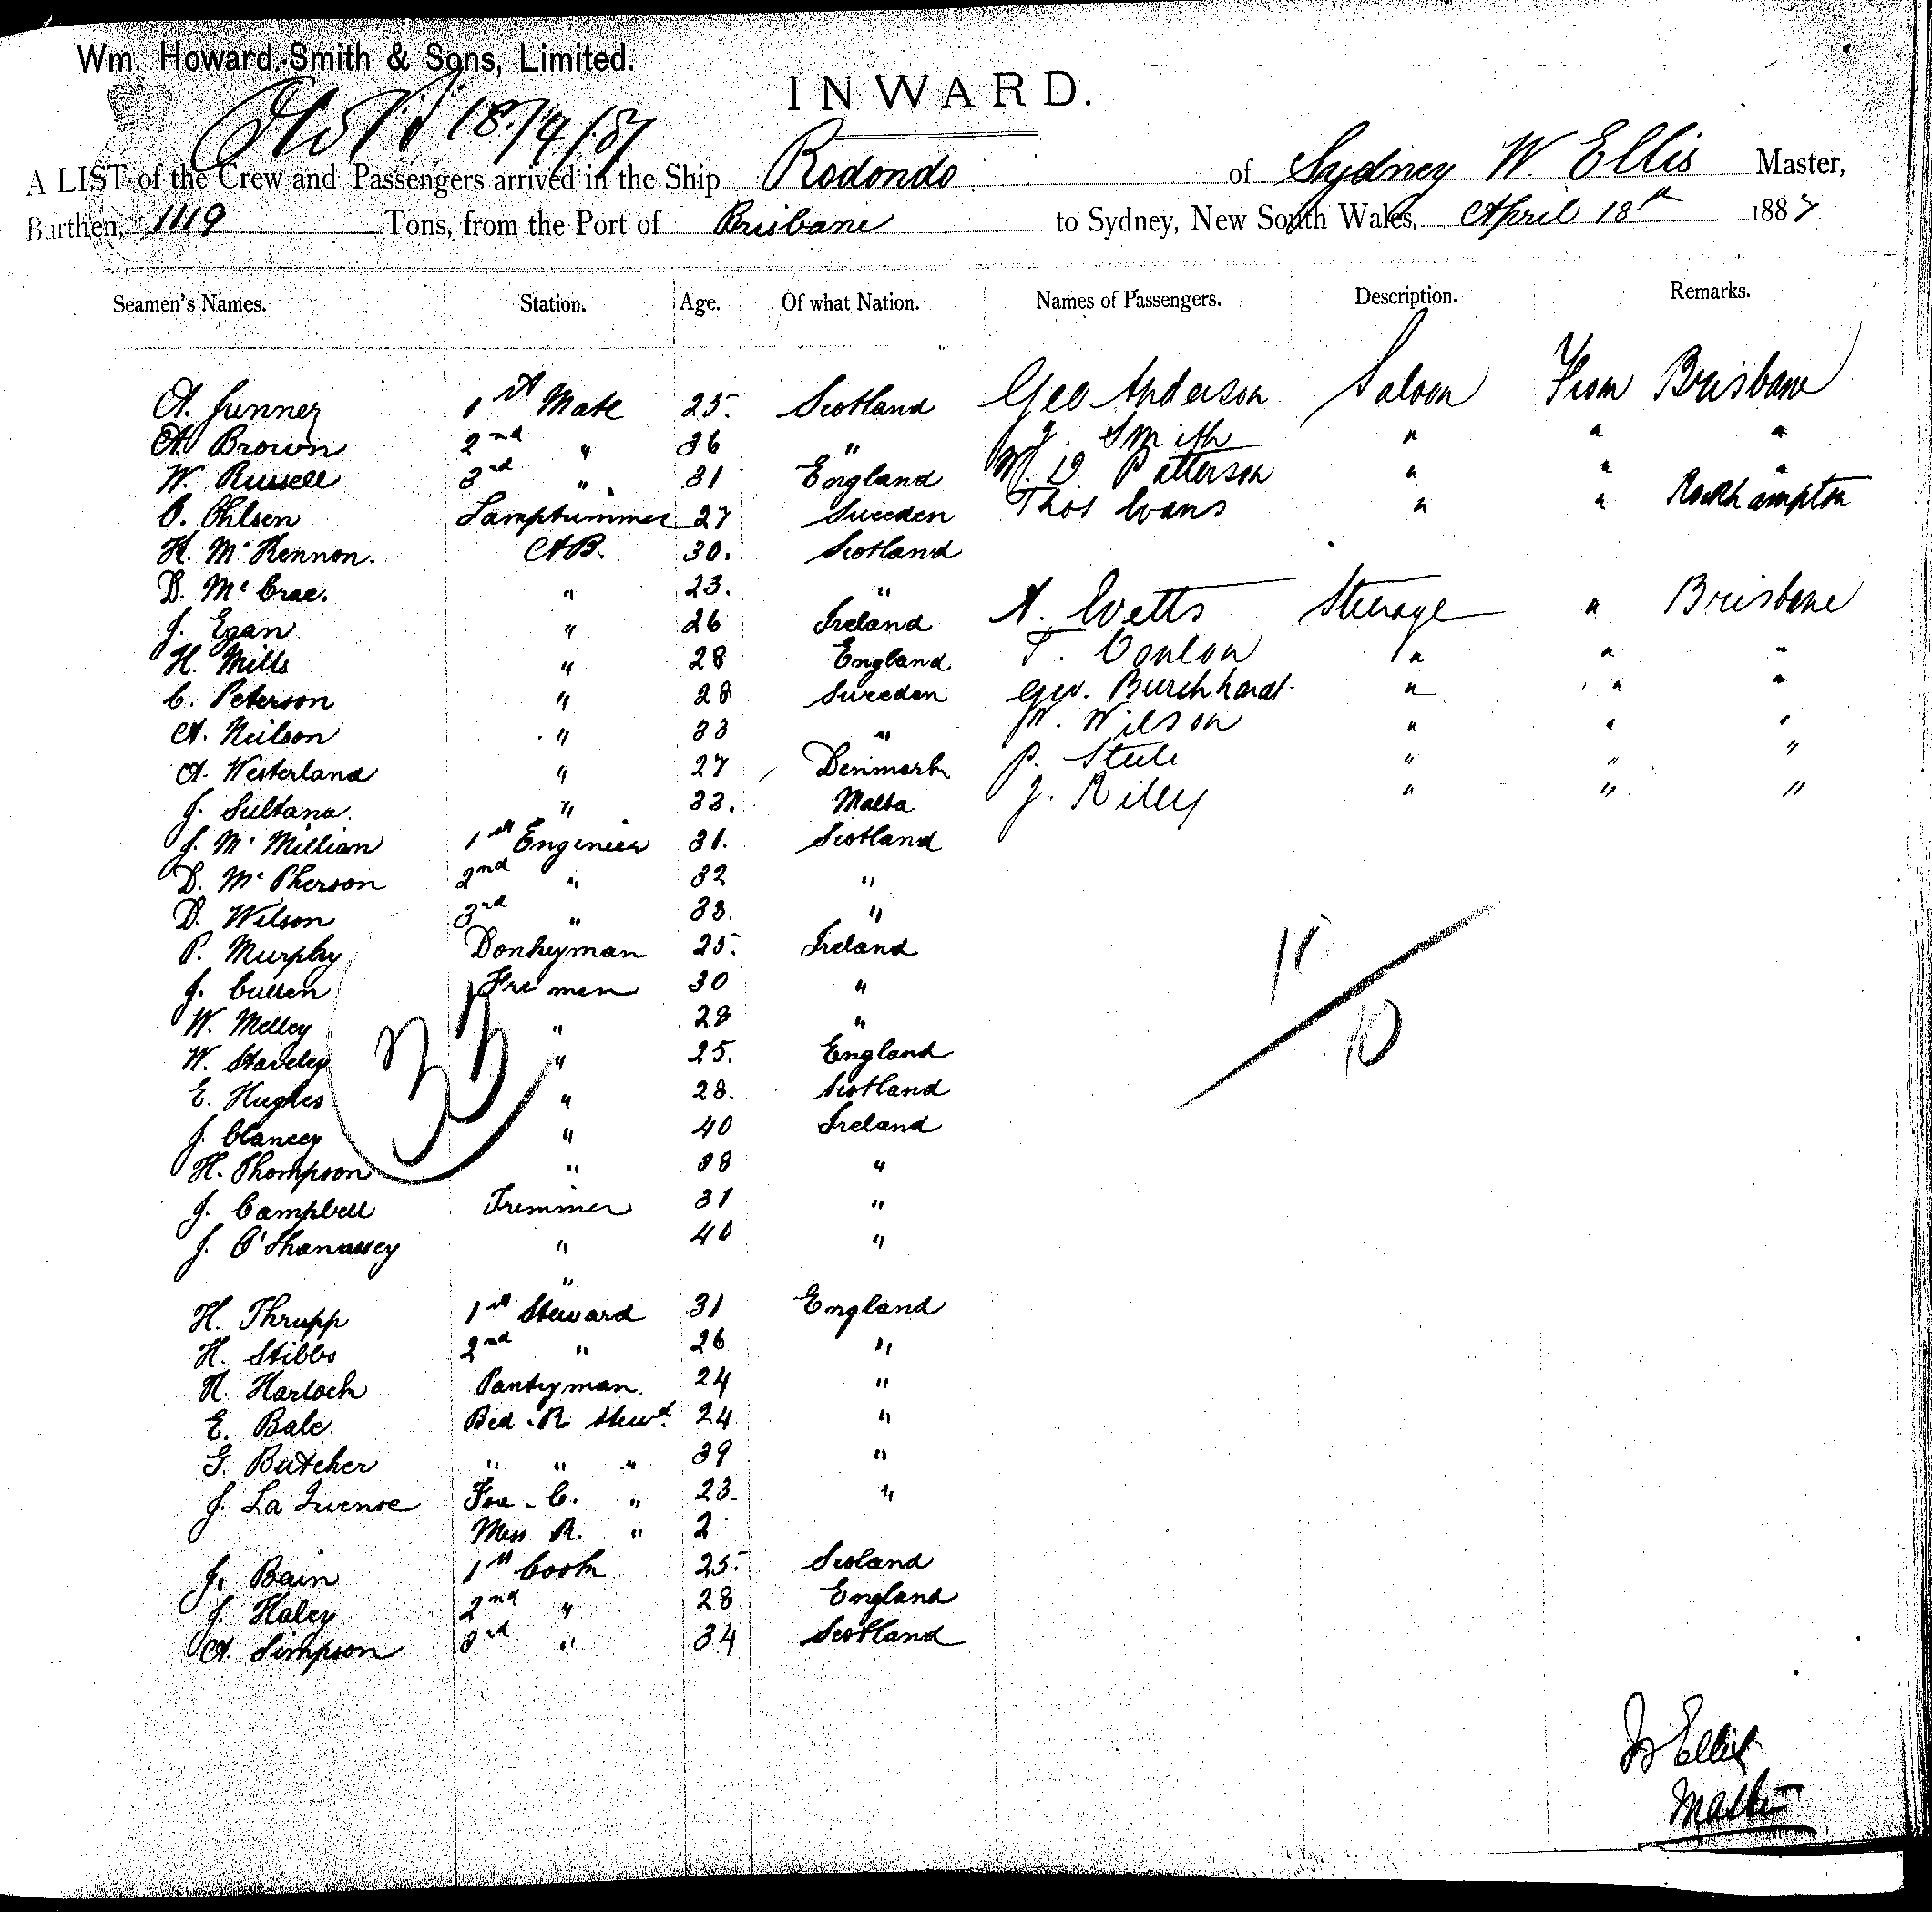 Wm. Howard Smith & Sons, Limited.
INWARD.
18/4/87
A LIST of the Crew and Passengers arrived in the Ship Rodondo of Sydney W. Ellis Master,
Burthen, 1119 Tons, from the Port of Brisbane to Sydney, New South Wales, April 18th 1887
Seamen's Names. Station. Age. Of what Nation. Names of Passengers. Description. Remarks.
A. Gunner 1st Mate 25. Scotland Geo Anderson Saloon From Brisbane
A. Brown 2nd " 36 " J. Smith " " "
W. Russell 3rd " 31 England W. D. Patterson " " "
O. Ohlsen Lamptrimmer 27 Sweden Thos Evans " " Rockhampton
H. McKennon. AB. 30. Scotland
D. McCrae. " 23. "
J. Egan " 26 Ireland A. Evetts Steerage " Brisbane
H. Mills " 28 England T. Conlon " " "
C. Peterson " 28 Sweden Geo. Burchhardt " " "
A. Neilson " 33 " W. Wilson " " "
A. Westerland " 27 Denmark P. Steele " " "
J. Sultana. " 33. Malta J. Riley " " "
J. McMillian 1st Engineer 31. Scotland
D. McPherson 2nd " 32 "
D. Wilson 3rd " 33. "
P. Murphy Donkeyman 25. Ireland
J. Cullen Firemen 30 "
W. Melley " 28 "
W. Staveley " 25. England
E. Hughes " 28. Scotland
J. Clancey " 40 Ireland
H. Thompson " 38 "
J. Campbell Trimmer 31 "
J. O'Shanassey " 40 "
"
H. Thrupp 1st Steward 31 England
H. Stibbs 2nd " 26 "
R. Harloch Pantryman. 24 "
E. Bale Bed. R Stewd. 24 "
G. Butcher " " " 39 "
J. La Fore. C. " 23. "
Mess R. " 2
J. Bain 1st Cook 25. Scoland
J. Haley 2nd " 28 England
A. Simpson 3rd " 34 Scotland
33
11/10
W Ellis
Master